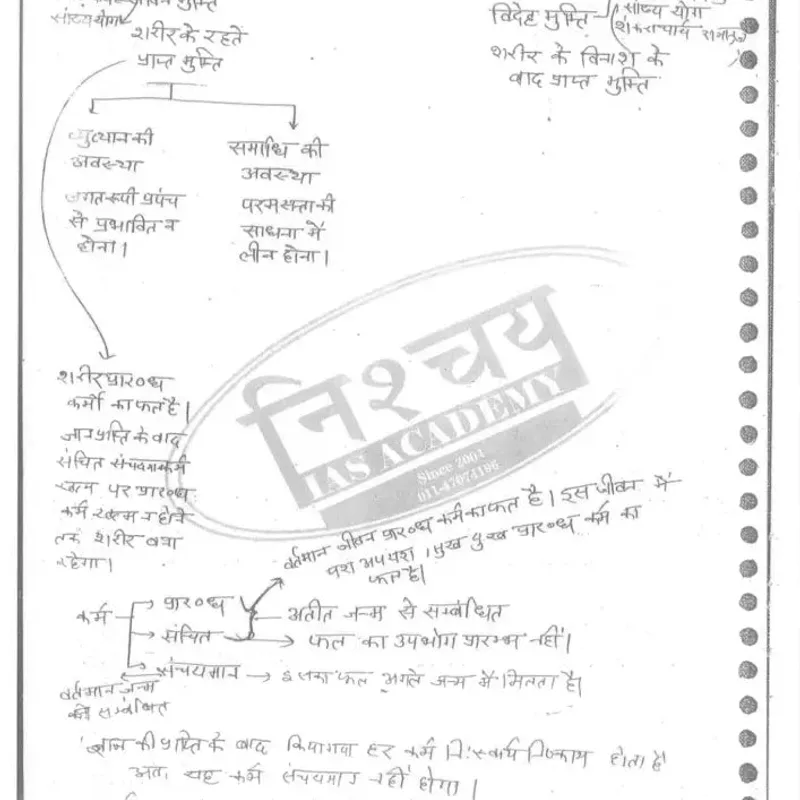 सांख्ययोग
शरीर के रहते
प्राप्त मुक्ति
विदेह मुक्ति
सांख्य योग
शंकराचार्य रामानुज
शरीर के विनाश के
बाद प्राप्त मुक्ति
व्युत्थान की
अवस्था
जगतरूपी प्रपंच
से प्रभावित न
होना।
समाधि की
अवस्था
परमसत्ता की
साधना में
लीन होना।
निश्चय
IAS ACADEMY
Since 2004
शरीर प्रारब्ध
कर्मों का फल है।
ज्ञान प्राप्ति के बाद
संचित संचयमान कर्म
खत्म पर प्रारब्ध
कर्म खत्म न होने
तक शरीर बना
रहेगा।
वर्तमान जीवन प्रारब्ध कर्म का फल है। इस जीवन में
यश अपयश, सुख दुख प्रारब्ध कर्म का
फल है।
कर्म
प्रारब्ध
संचित
अतीत जन्म से सम्बंधित
फल का उपभोग प्रारम्भ नहीं।
संचयमान → इसका फल अगले जन्म में मिलता है।
वर्तमान जन्म
से सम्बंधित
ज्ञान की प्राप्ति के बाद किया गया हर कर्म निःस्वार्थ निष्काम होता है
अतः यह कर्म संचयमान नहीं होगा।